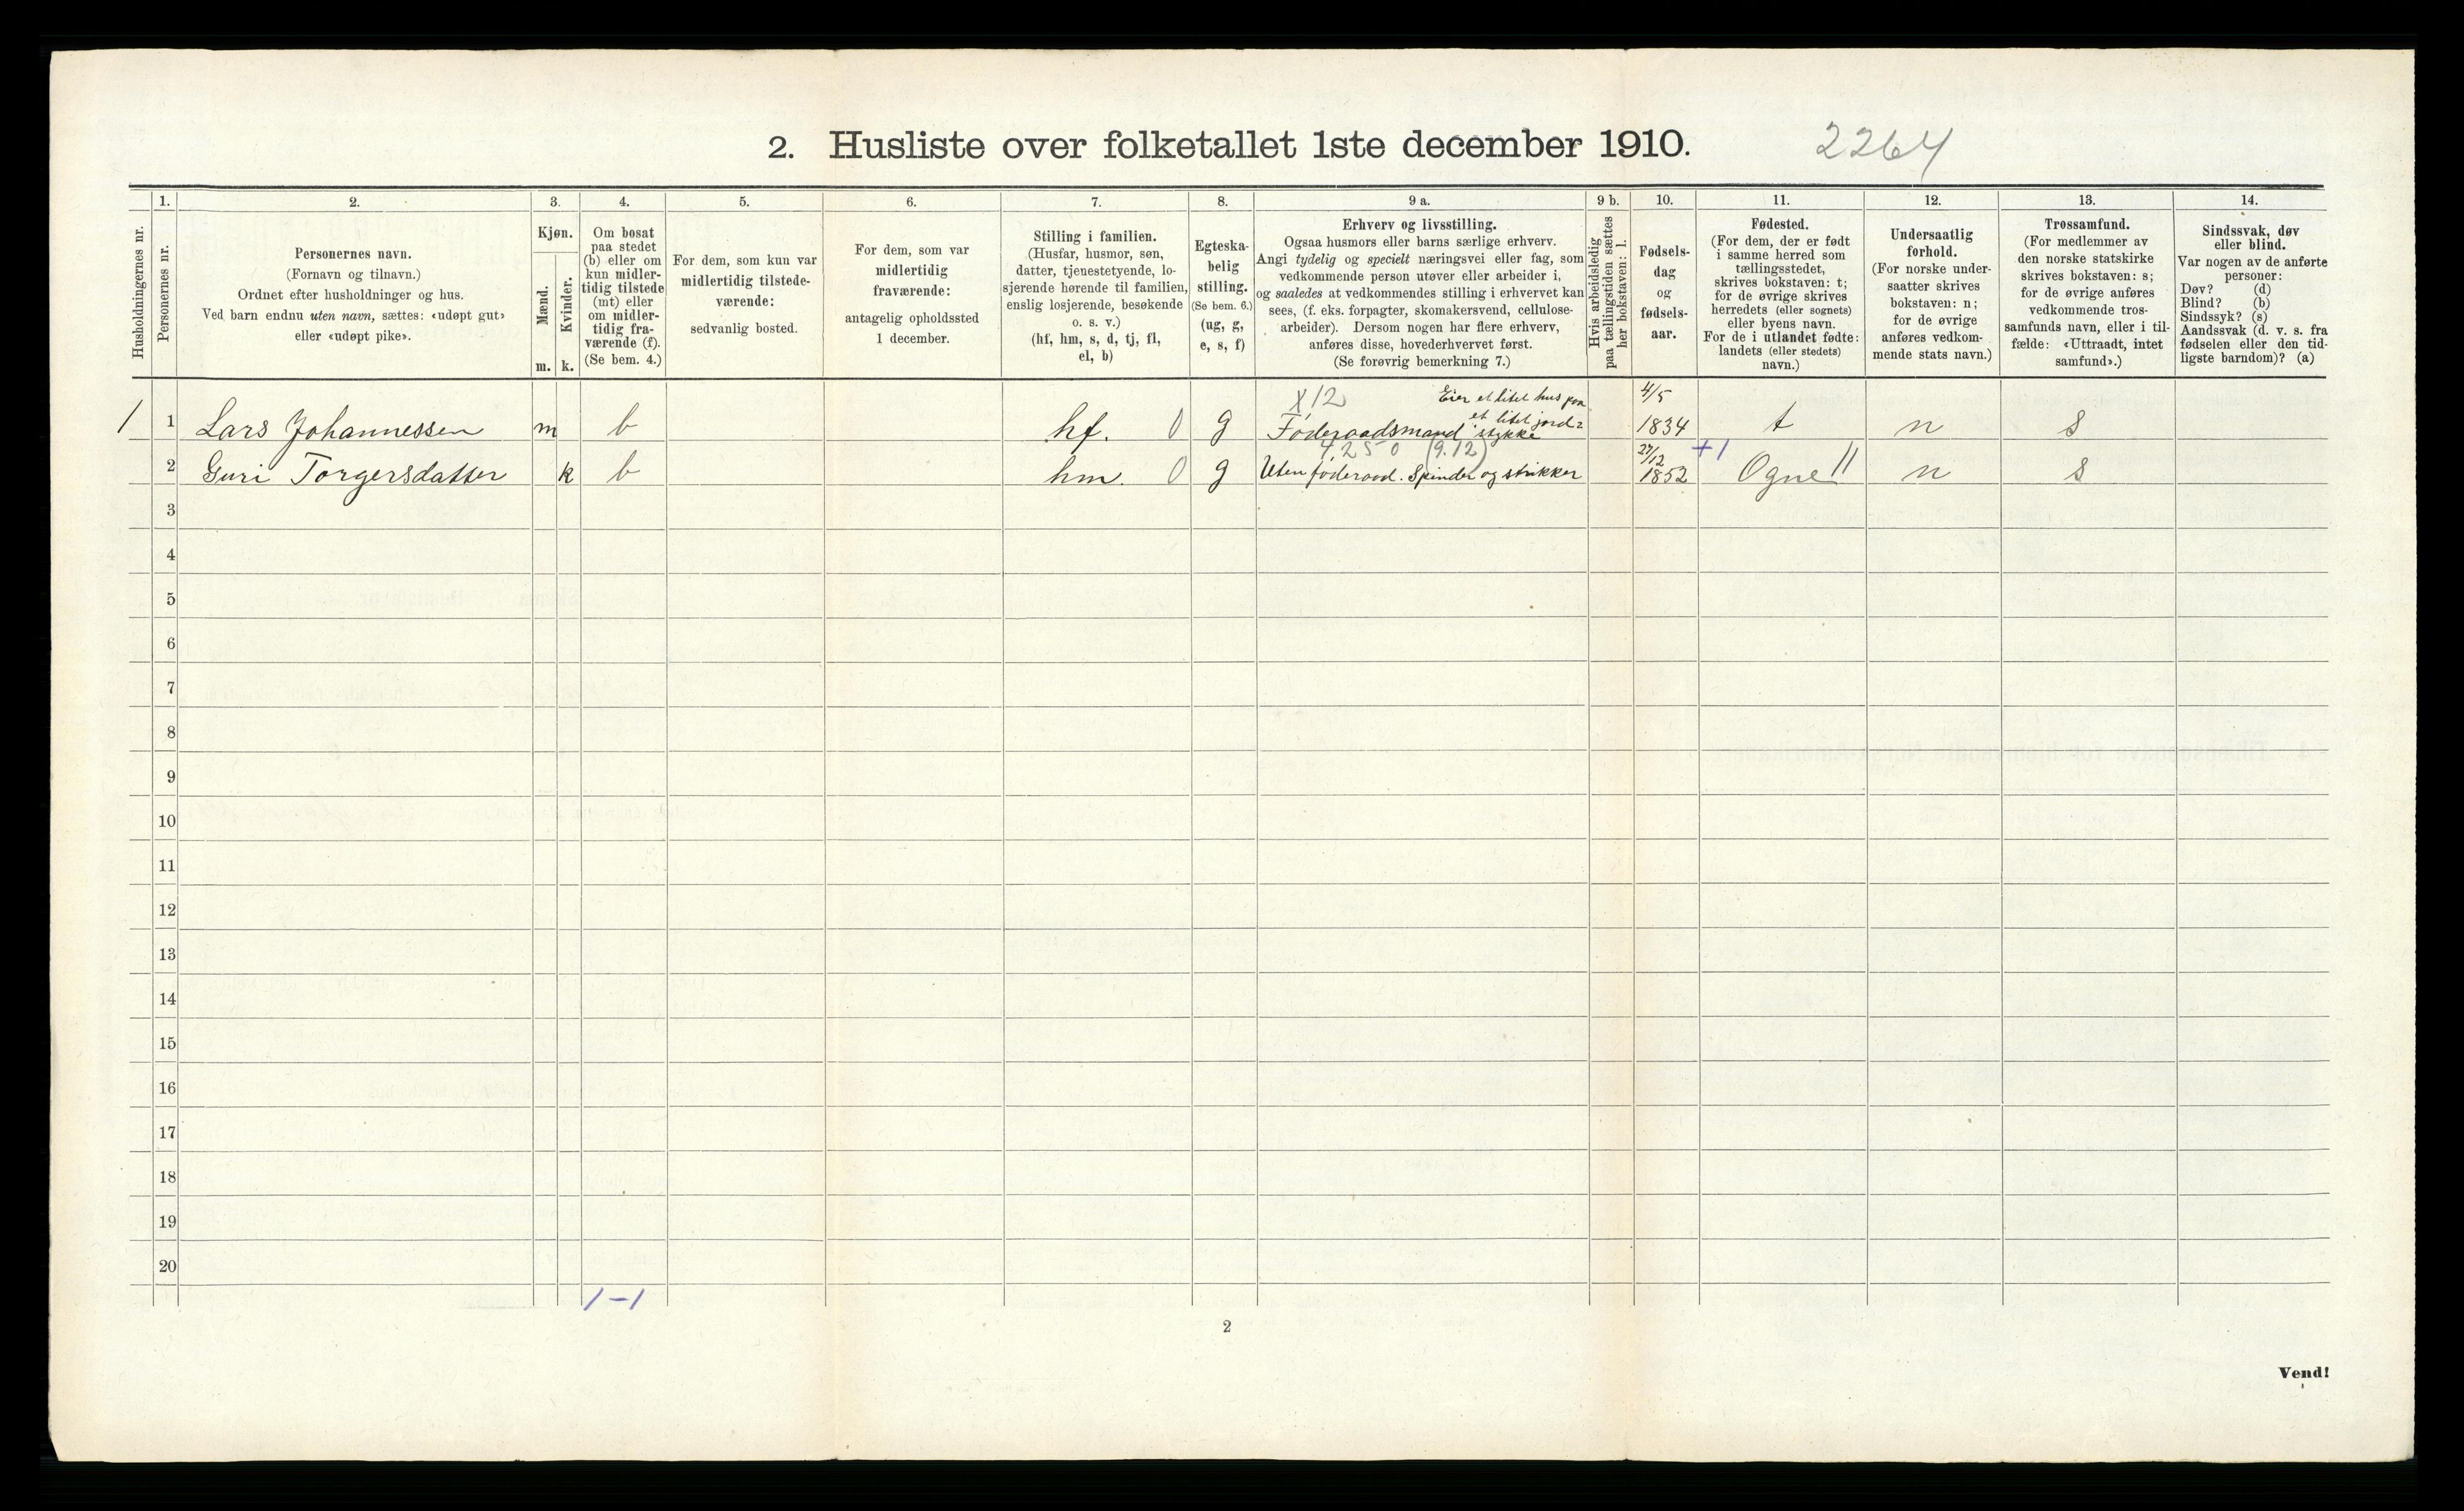 2. Husliste over folketallet 1ste december 1910. 2264
Husholdningernes nr.
1.
Personernes nr.
2.
Personernes navn.
(Fornavn og tilnavn.)
Ordnet efter husholdninger og hus.
Ved barn endnu uten navn, sættes: «udøpt gut»
eller «udøpt pike».
3.
Kjøn.
Mænd.
Kvinder.
m. k.
4.
Om bosat
paa stedet
(b) eller om
kun midler-
tidig tilstede
(mt) eller
om midler-
tidig fra-
værende (f).
(Se bem. 4.)
5.
For dem, som kun var
midlertidig tilstede-
værende:
sedvanlig bosted.
6.
For dem, som var
midlertidig
fraværende:
antagelig opholdssted
1 december.
7.
Stilling i familien.
(Husfar, husmor, søn,
datter, tjenestetyende, lo-
sjerende hørende til familien,
enslig losjerende, besøkende
o. s. v.)
(hf, hm, s, d, tj, fl,
el, b)
8.
Egteska-
belig
stilling.
(Se bem. 6.)
(ug, g,
e, s, f)
9 a.
Erhverv og livsstilling.
Ogsaa husmors eller barns særlige erhverv.
Angi tydelig og specielt næringsvei eller fag, som
vedkommende person utøver eller arbeider i,
og saaledes at vedkommendes stilling i erhvervet kan
sees, (f. eks. forpagter, skomakersvend, cellulose-
arbeider). Dersom nogen har flere erhverv,
anføres disse, hovederhvervet først.
(Se forøvrig bemerkning 7.)
9 b.
Hvis arbeidsledig
paa tællingstiden sættes
her bokstaven: l.
10.
Fødsels-
dag
og
fødsels-
aar.
11.
Fødested.
(For dem, der er født
i samme herred som
tællingsstedet,
skrives bokstaven: t;
for de øvrige skrives
herredets (eller sognets)
eller byens navn.
For de i utlandet fødte:
landets (eller stedets)
navn.)
12.
Undersaatlig
forhold.
(For norske under-
saatter skrives
bokstaven: n;
for de øvrige
anføres vedkom-
mende stats navn.)
13.
Trossamfund.
(For medlemmer av
den norske statskirke
skrives bokstaven: s;
for de øvrige anføres
vedkommende tros-
samfunds navn, eller i til-
fælde: «Uttraadt, intet
samfund».)
14.
Sindssvak, døv
eller blind.
Var nogen av de anførte
personer:
Døv? (d)
Blind? (b)
Sindssyk? (s)
Aandssvak (d. v. s. fra
fødselen eller den tid-
ligste barndom)? (a)
X12 Eier et litet hus paa 4/5
et litet jord=
1 1 Lars Johannessen m b hf. 0 g Føderaadsmand stykke 1834 t n s
4,250 (9.12) 27/12 +1
2 Guri Torgersdatter k b hm. 0 g Uten føderaad. Spinder og strikker 1852 Ogne 11 n s
3
4
5
6
7
8
9
10
11
12
13
14
15
16
17
18
19
20
1-1
2
Vend!